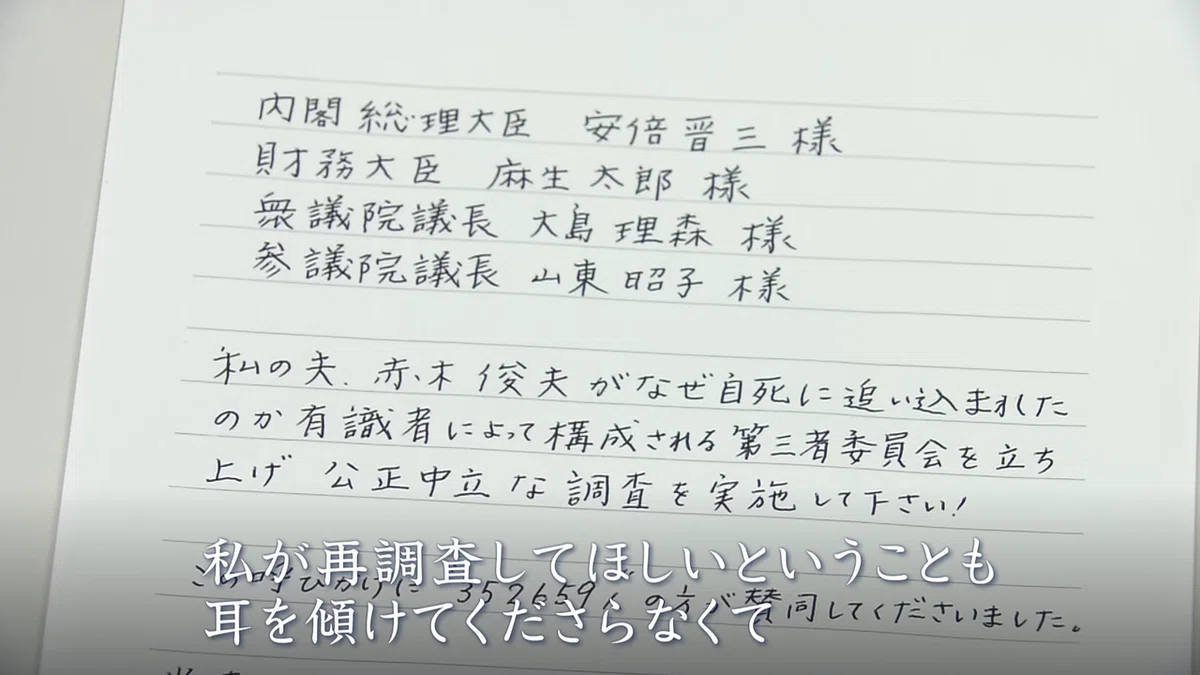 内閣総理大臣 安倍晋三 様
財務大臣 麻生太郎 様
衆議院議長 大島理森 様
参議院議長 山東昭子 様
私の夫、赤木俊夫がなぜ自死に追い込まれた
のか有識者によって構成される第三者委員会を立ち
上げ 公正中立な調査を実施して下さい!
私が再調査してほしいということも
この呼びかけに 352659 の方が賛同してくださいました。
耳を傾けてくださらなくて